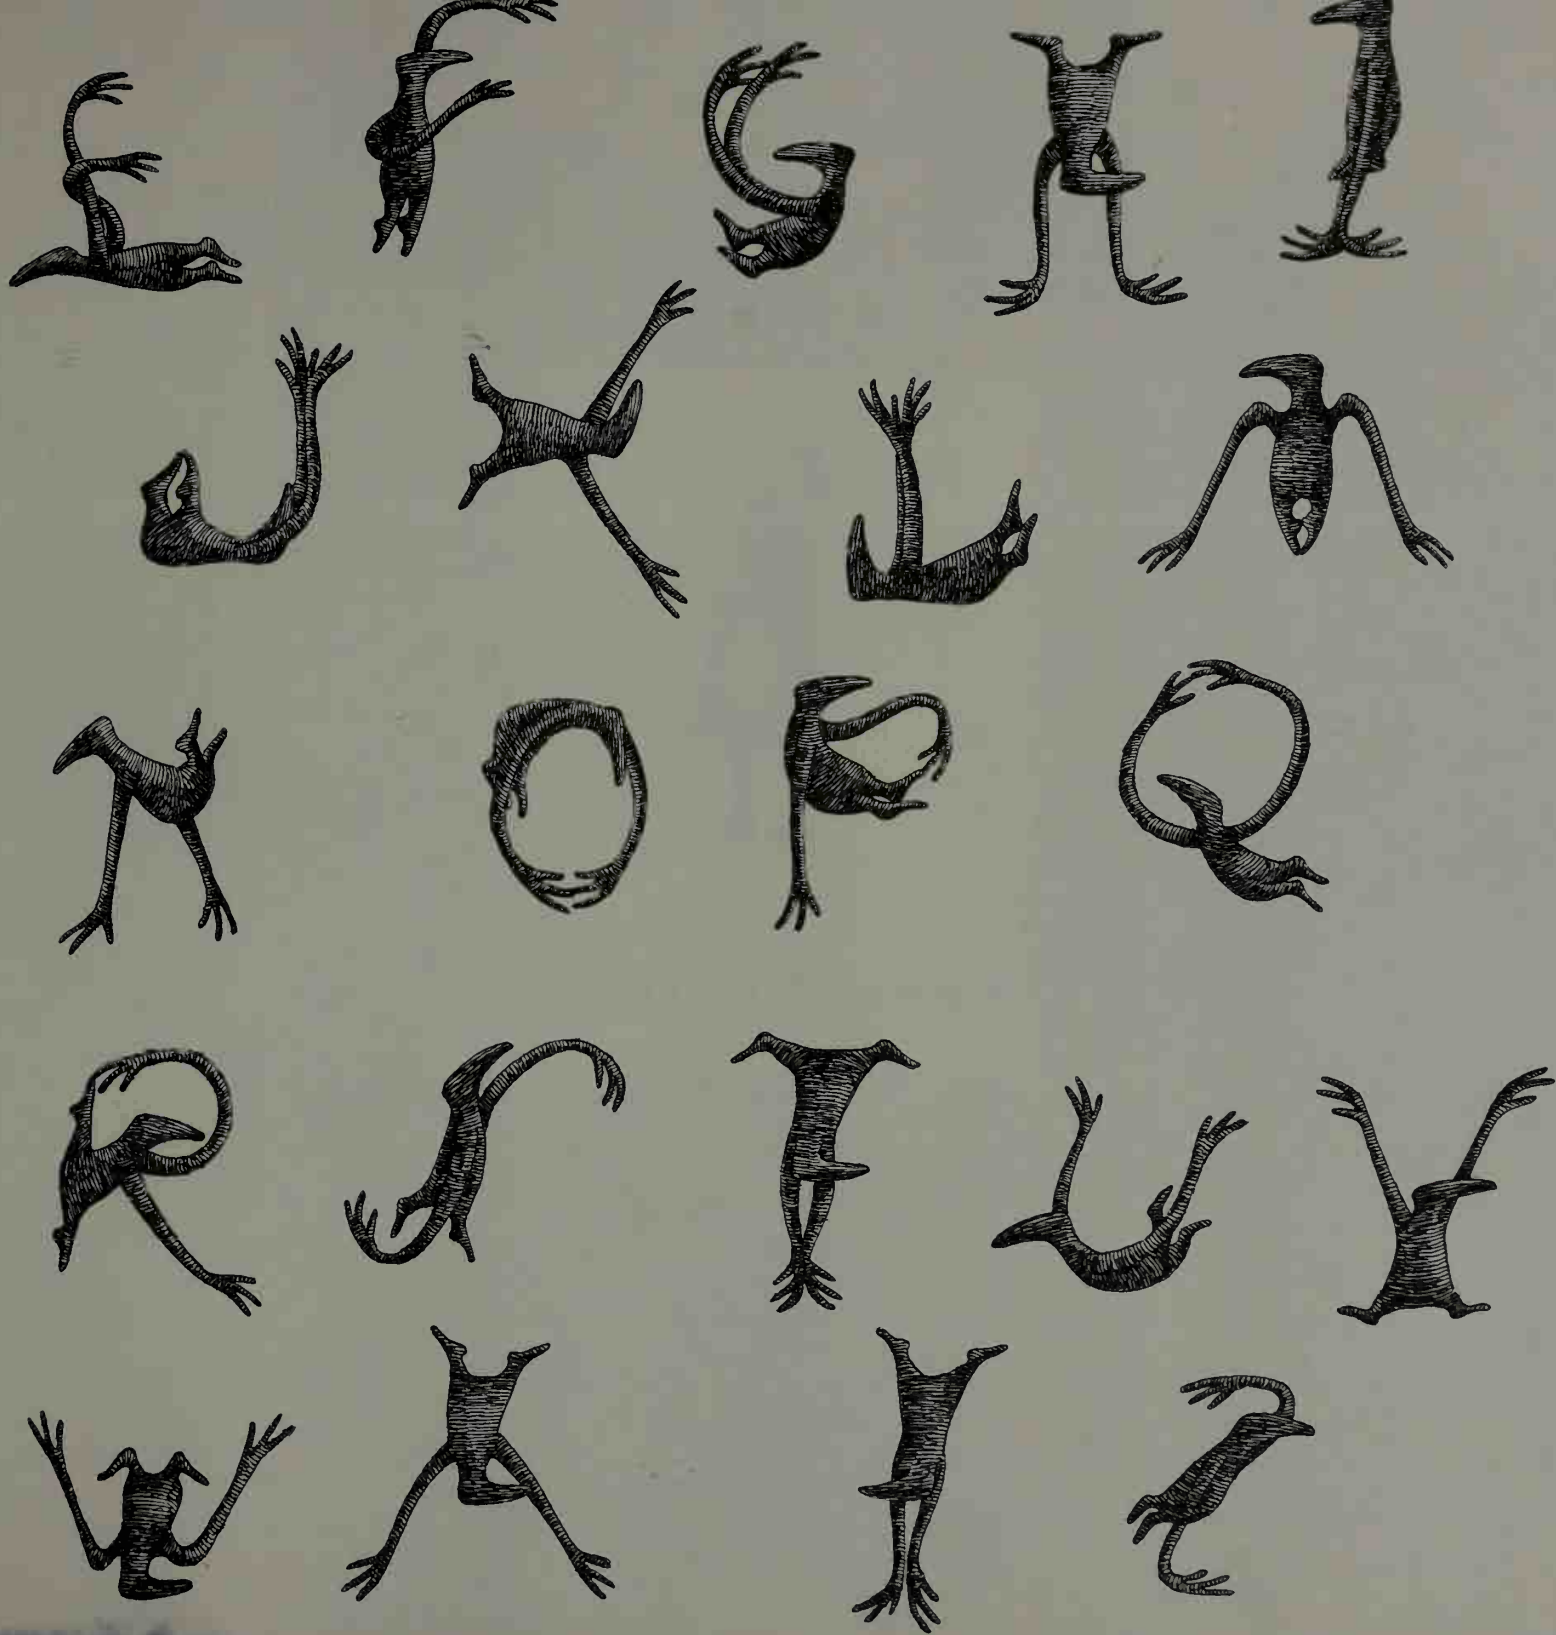 E F G H I
J K L M
N O P Q
R S T U V
W X Y Z